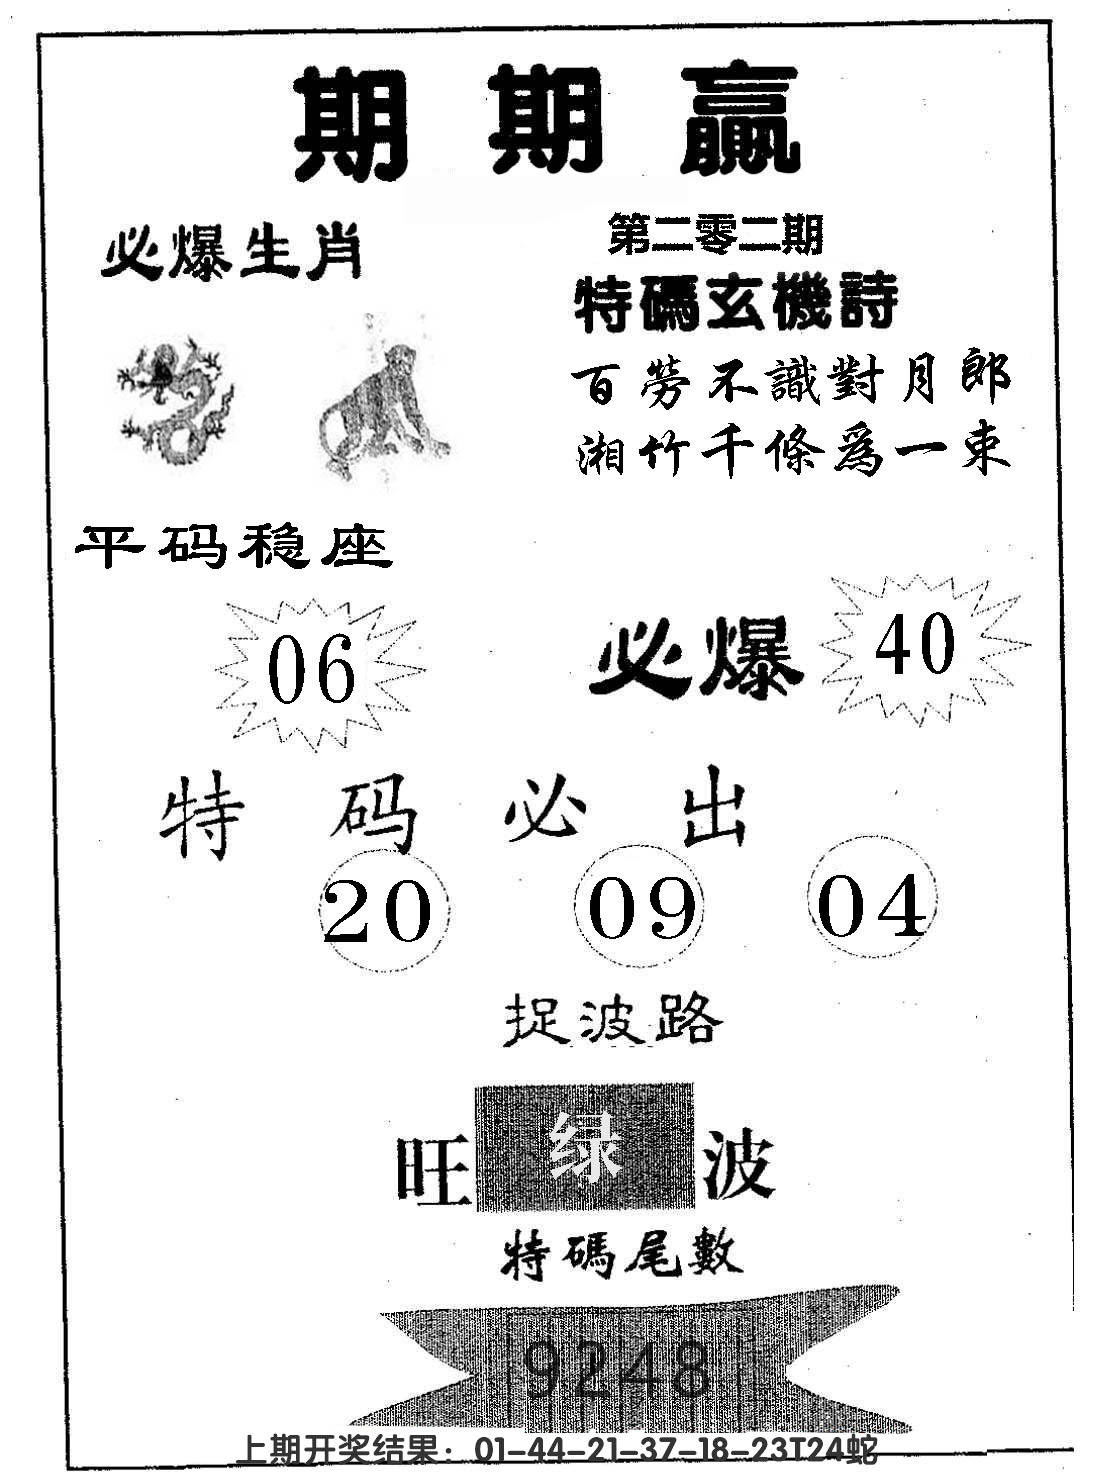 期期贏
必爆生肖
第二零二期
特碼玄機詩
百勞不識對月郎
湘竹千條爲一束
平码稳座
06
必爆
40
特码必出
20 09 04
捉波路
旺绿波
特碼尾數
9248
上期开奖结果：01-44-21-37-18-23T24蛇